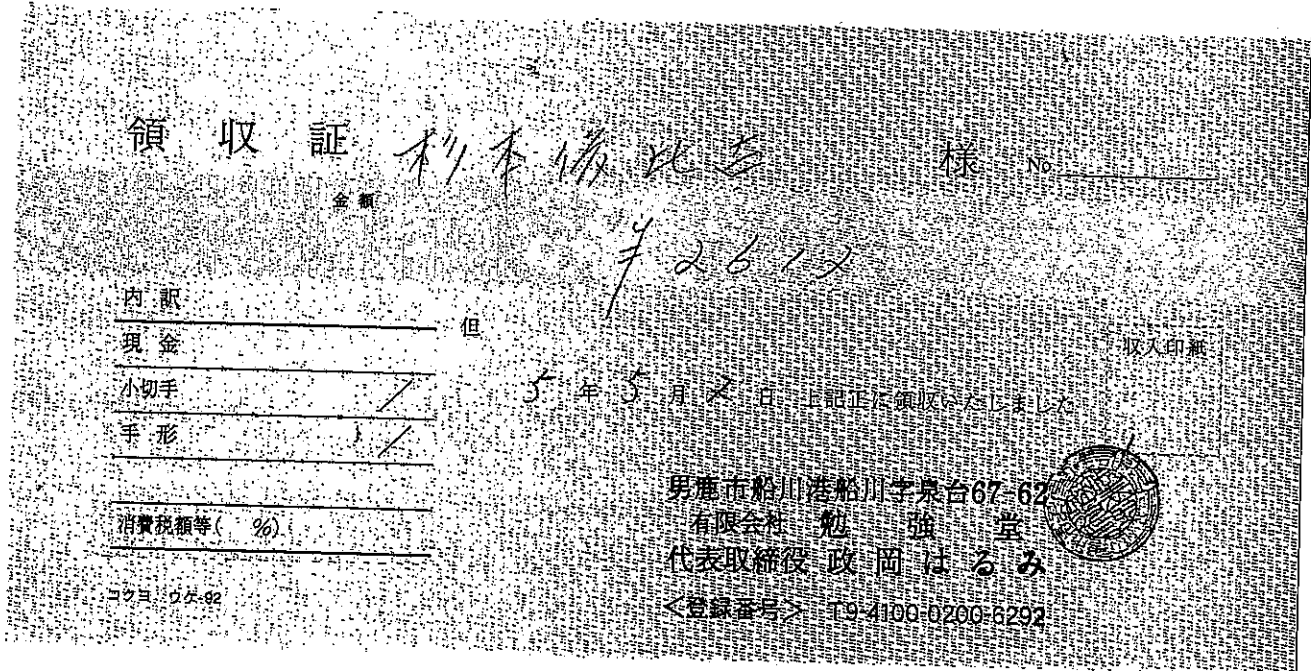 領収証 杉本俊比古 様 No.
金額
¥2612
内訳
現金
小切手
手形
消費税額等( %)
コクヨ ウケ-92
但
5年5月2日 上記正に領収いたしました
収入印紙
男鹿市船川港船川字泉台67-62
有限会社 勉強堂
代表取締役 政岡はるみ
<登録番号> T9-4100-0200-6292